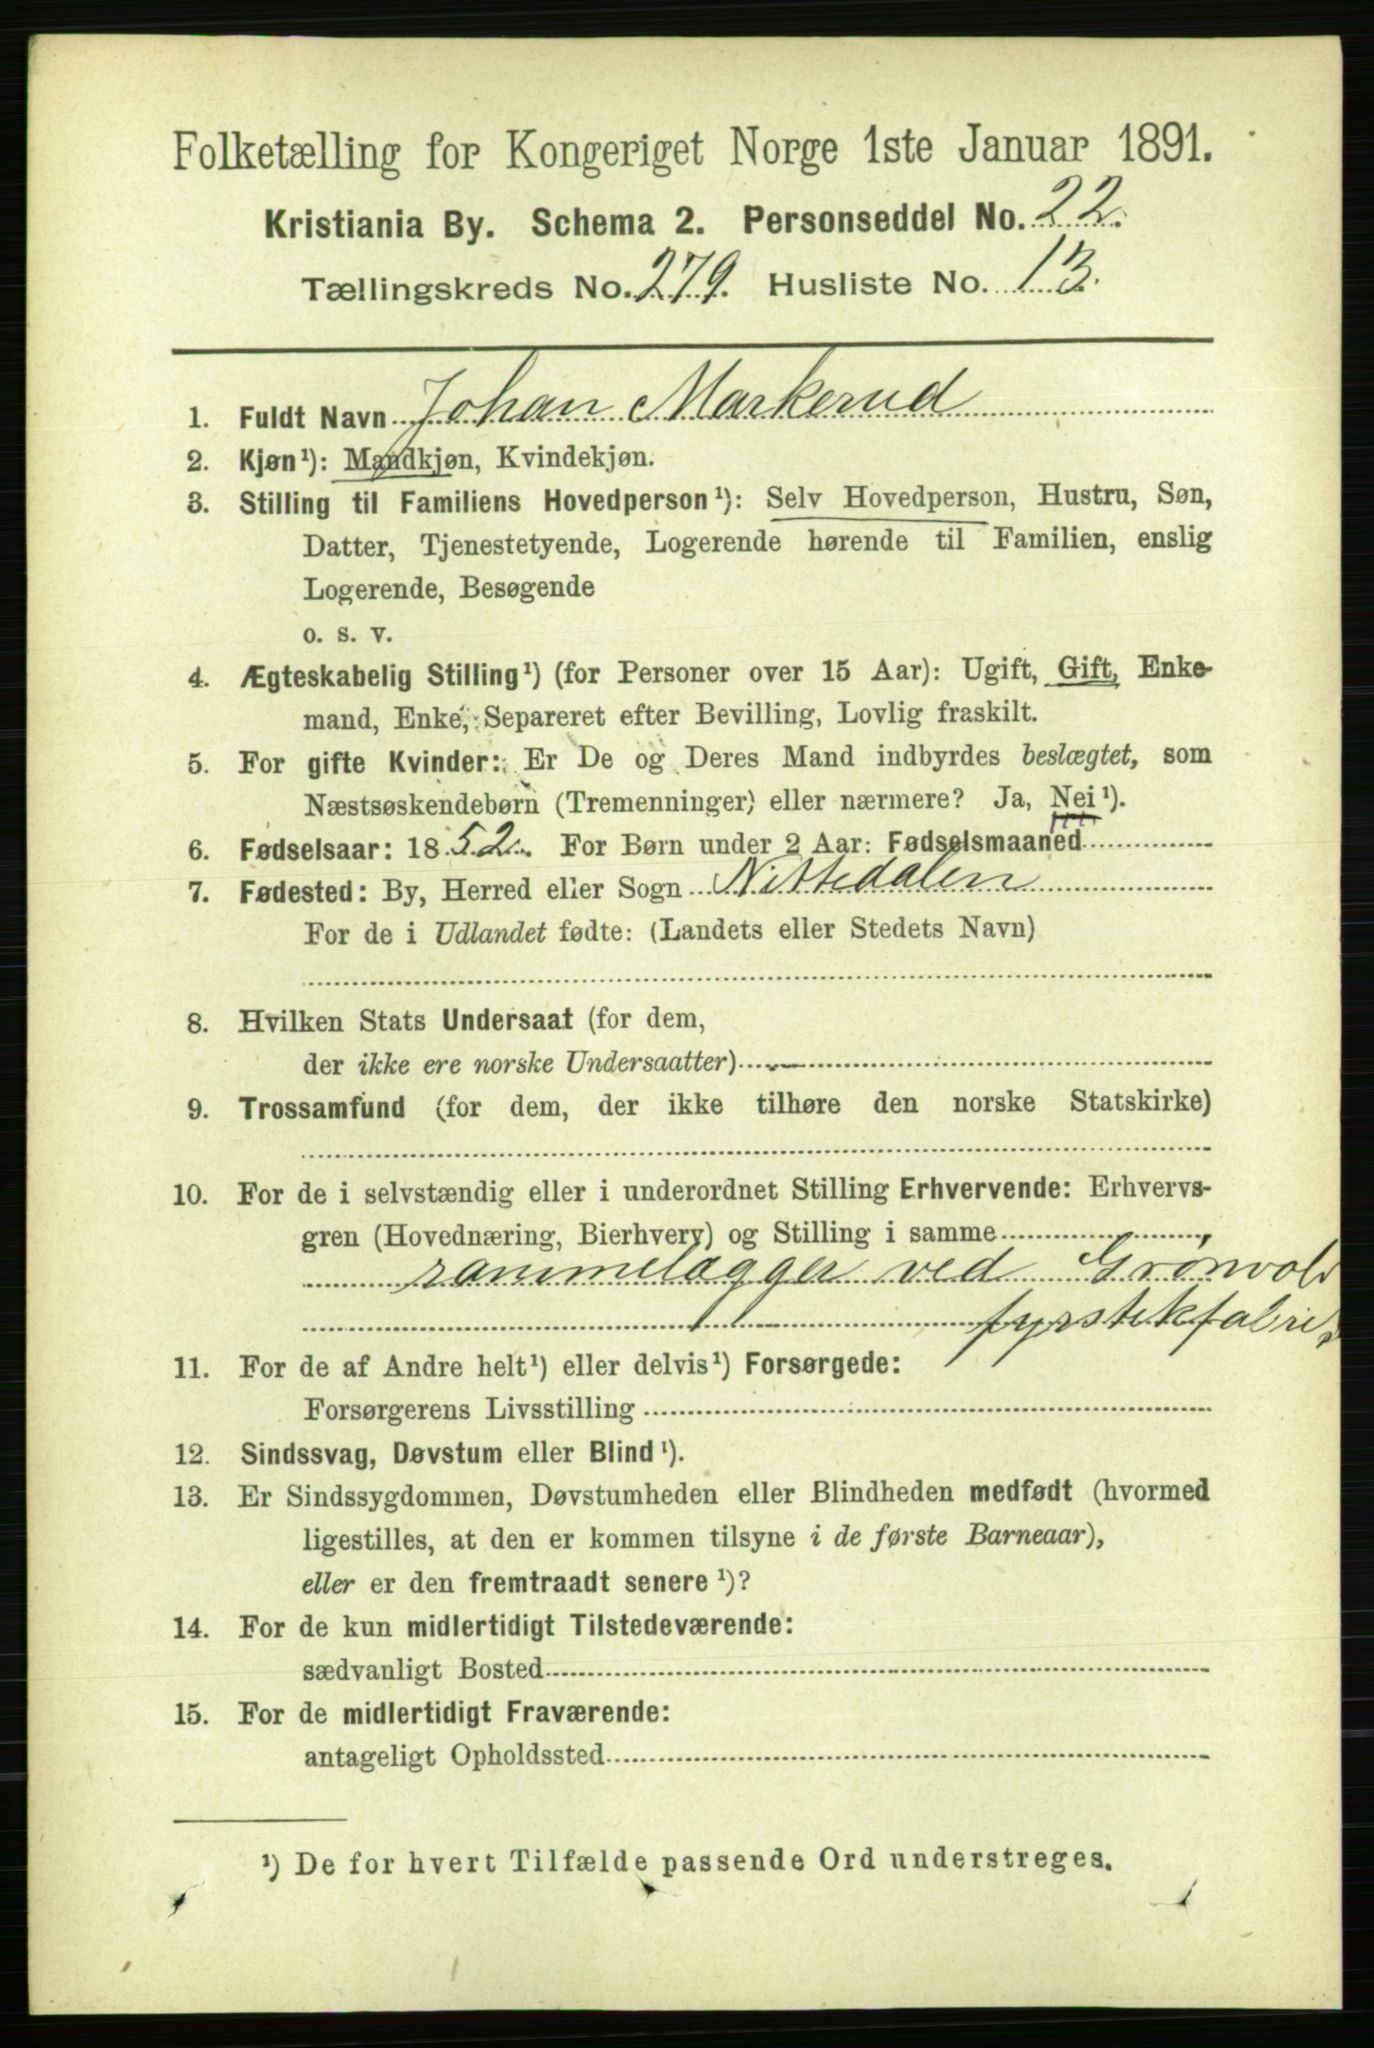 Folketælling for Kongeriget Norge 1ste Januar 1891.
Kristiania By. Schema 2. Personseddel No. 22.
Tællingskreds No. 279. Husliste No. 13.
1. Fuldt Navn Johan Markerud
2. Kjøn¹): Mandkjøn, Kvindekjøn.
3. Stilling til Familiens Hovedperson¹): Selv Hovedperson, Hustru, Søn,
Datter, Tjenestetyende, Logerende hørende til Familien, enslig
Logerende, Besøgende
o. s. v.
4. Ægteskabelig Stilling¹) (for Personer over 15 Aar): Ugift, Gift, Enke-
mand, Enke, Separeret efter Bevilling, Lovlig fraskilt.
5. For gifte Kvinder: Er De og Deres Mand indbyrdes beslægtet, som
Næstsøskendebørn (Tremenninger) eller nærmere? Ja, Nei¹).
6. Fødselsaar: 1852. For Børn under 2 Aar: Fødselsmaaned
7. Fødested: By, Herred eller Sogn Nittedalen
For de i Udlandet fødte: (Landets eller Stedets Navn)
8. Hvilken Stats Undersaat (for dem,
der ikke ere norske Undersaatter)
9. Trossamfund (for dem, der ikke tilhøre den norske Statskirke)
10. For de i selvstændig eller i underordnet Stilling Erhvervende: Erhvervs-
gren (Hovednæring, Bierhverv) og Stilling i samme
rammelægger ved Grønvold
fyrstikfabrik
11. For de af Andre helt¹) eller delvis¹) Forsørgede:
Forsørgerens Livsstilling
12. Sindssvag, Døvstum eller Blind¹).
13. Er Sindssygdommen, Døvstumheden eller Blindheden medfødt (hvormed
ligestilles, at den er kommen tilsyne i de første Barneaar),
eller er den fremtraadt senere¹)?
14. For de kun midlertidigt Tilstedeværende:
sædvanligt Bosted
15. For de midlertidigt Fraværende:
antageligt Opholdssted
¹) De for hvert Tilfælde passende Ord understreges.